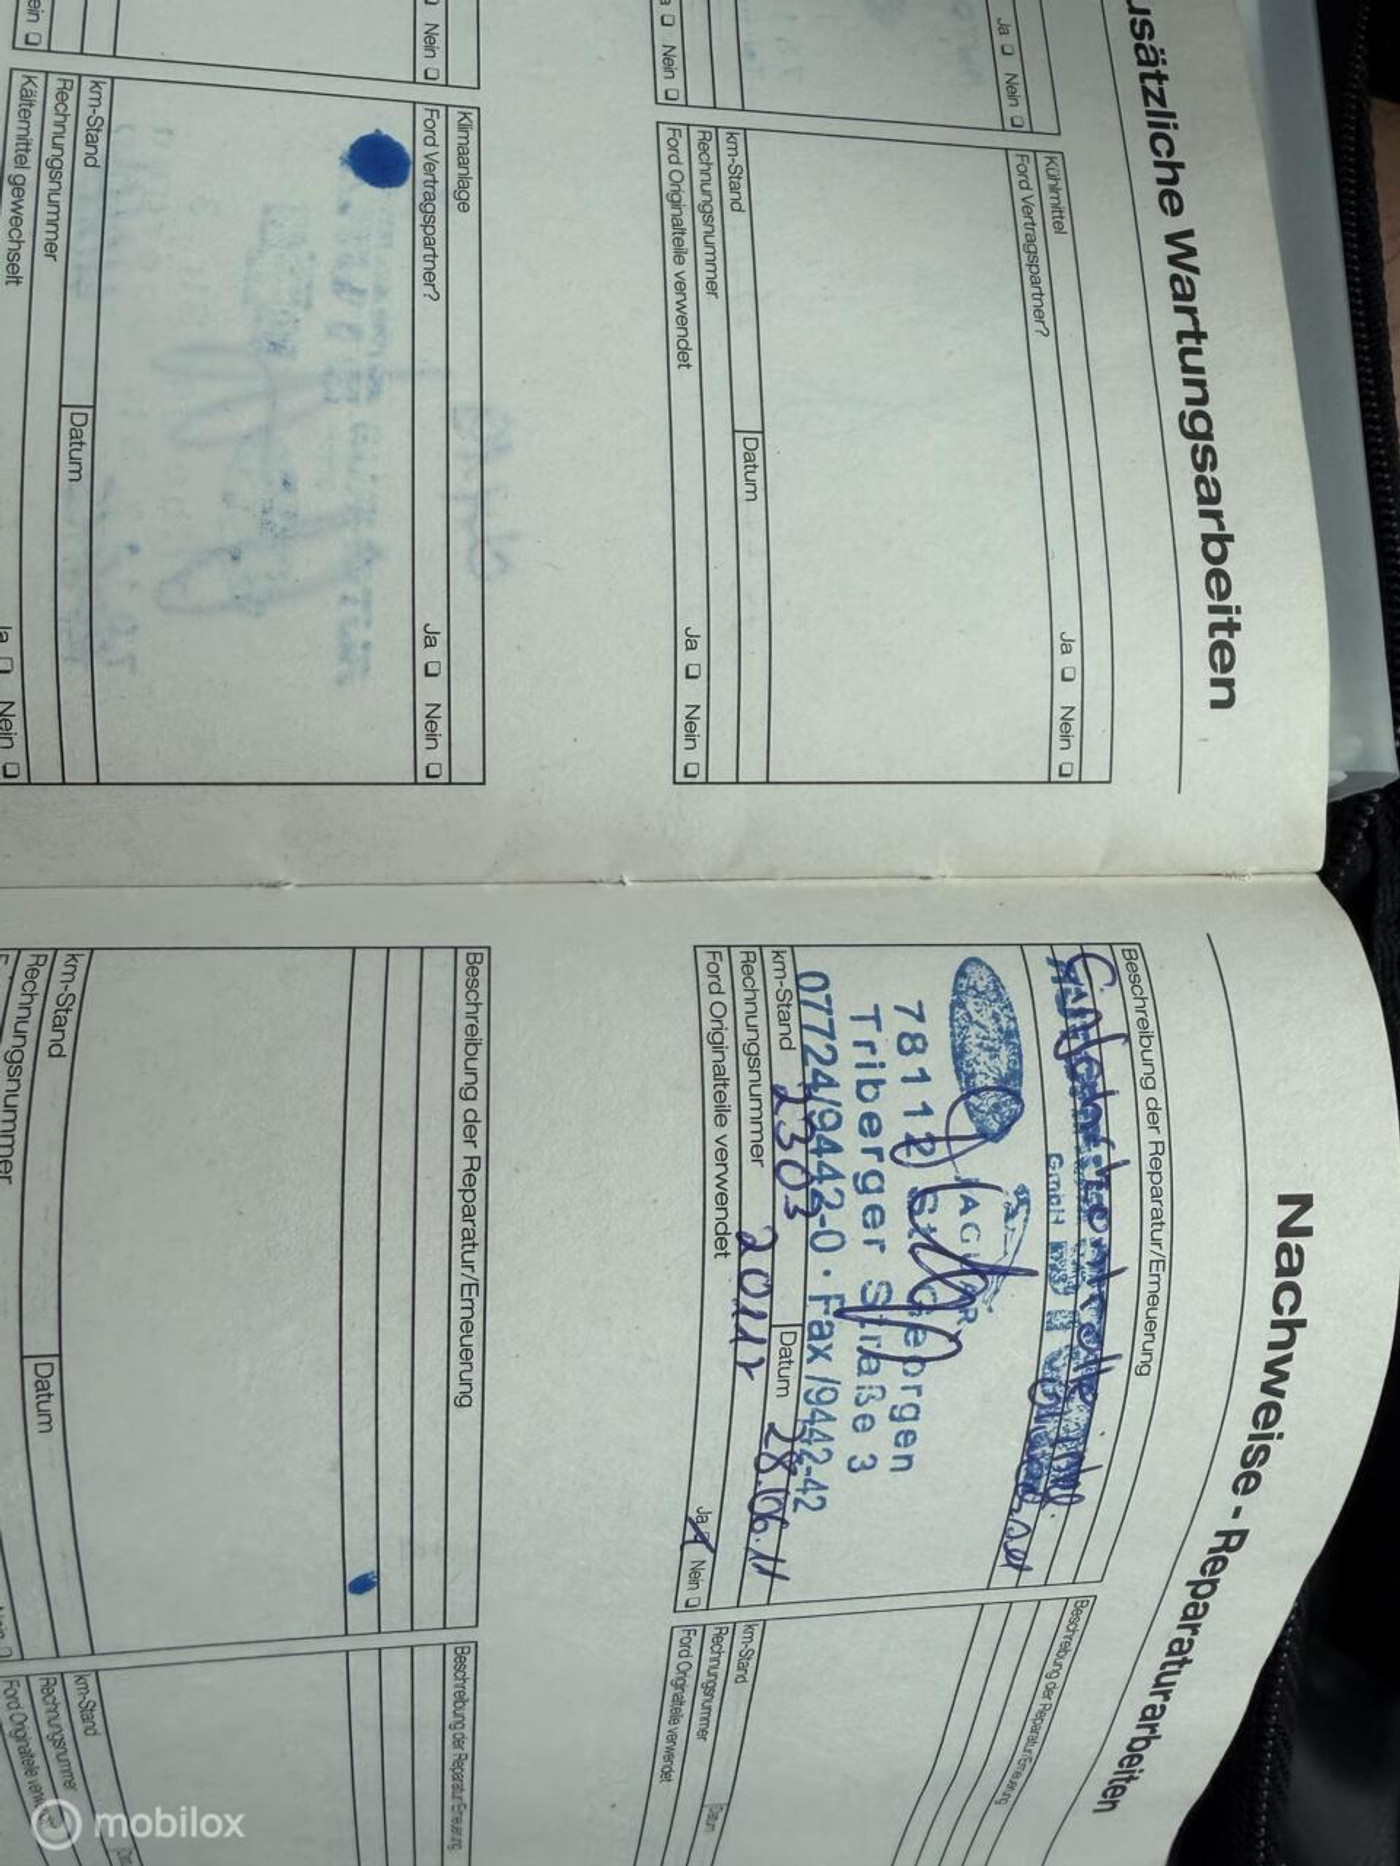 Zusätzliche Wartungsarbeiten
Ja ❑ Nein ❑
Kühlmittel
Ford Vertragspartner? Ja ❑ Nein ❑
Nein ❑
km-Stand Datum
Rechnungsnummer
Ford Originalteile verwendet Ja ❑ Nein ❑
Nein ❑
Klimaanlage
Ford Vertragspartner? Ja ❑ Nein ❑
km-Stand Datum
Rechnungsnummer
Kältemittel gewechselt Ja ❑ Nein ❑
Nachweise - Reparaturarbeiten
Beschreibung der Reparatur/Erneuerung
GmbH
JAGUAR
78112 St. Georgen
Triberger Straße 3
07724/9442-0 · Fax /9442-42
km-Stand 2303 Datum 28.06.11
Rechnungsnummer
Ford Originalteile verwendet Ja Nein ❑
Beschreibung der Reparatur/Erneuerung
km-Stand Datum
Rechnungsnummer
Ford Originalteile verwendet
Beschreibung der Reparatur/Erneuerung
km-Stand Datum
Rechnungsnummer
Beschreibung der Reparatur/Erneuerung
km-Stand
Rechnungsnummer
Ford Originalteile
mobilox